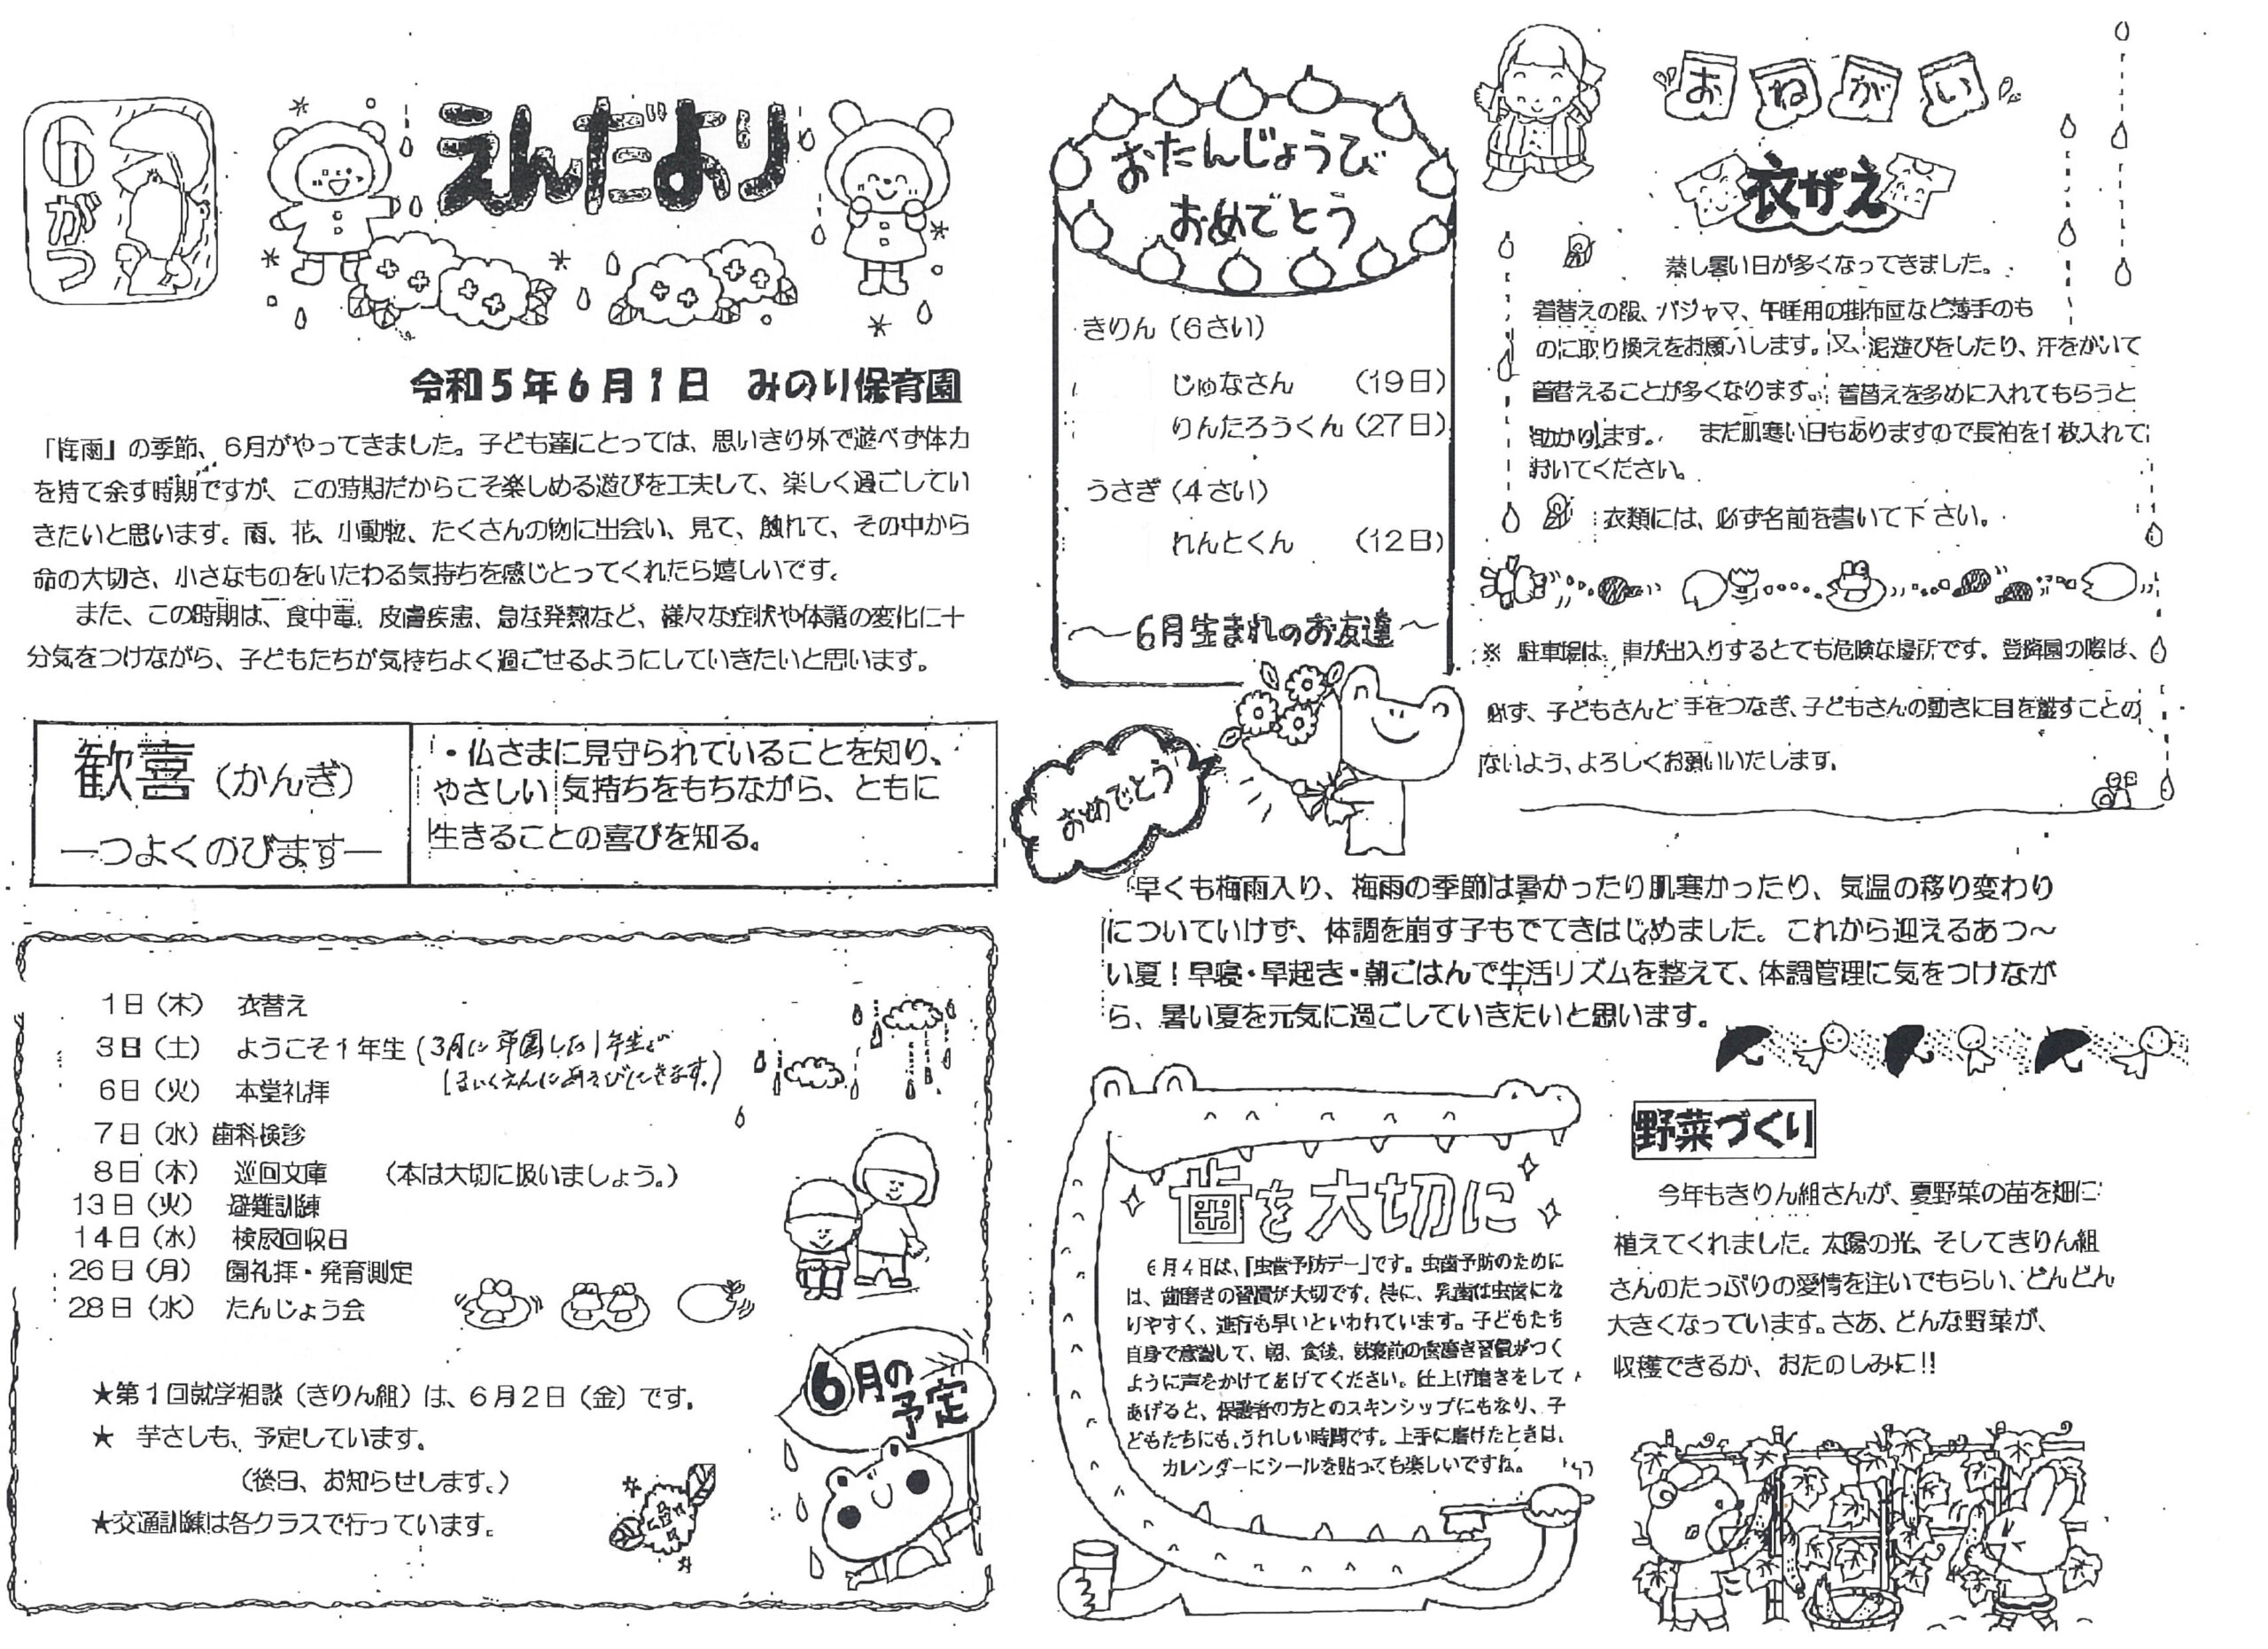 6がつ
えんだより
令和5年6月1日 みのり保育園
「梅雨」の季節、6月がやってきました。子ども達にとっては、思いきり外で遊べず体力
を持て余す時期ですが、この時期だからこそ楽しめる遊びを工夫して、楽しく過ごしてい
きたいと思います。雨、花、小動物、たくさんの物に出会い、見て、触れて、その中から
命の大切さ、小さなものをいたわる気持ちを感じとってくれたら嬉しいです。
また、この時期は、食中毒、皮膚疾患、急な発熱など、様々な症状や体調の変化に十
分気をつけながら、子どもたちが気持ちよく過ごせるようにしていきたいと思います。
歓喜(かんぎ)
―つよくのびます―
・仏さまに見守られていることを知り、
やさしい気持ちをもちながら、ともに
生きることの喜びを知る。
1日(木) 衣替え
3日(土) ようこそ1年生(3月に卒園した1年生が
ほいくえんにあそびにきます。)
6日(火) 本堂礼拝
7日(水)歯科検診
8日(木) 巡回文庫 (本は大切に扱いましょう。)
13日(火) 避難訓練
14日(水) 検尿回収日
26日(月) 園礼拝・発育測定
28日(水) たんじょう会
6月の
予定
★第1回就学相談(きりん組)は、6月2日(金)です。
★ 芋さしも、予定しています。
(後日、お知らせします。)
★交通訓練は各クラスで行っています。
おたんじょうび
おめでとう
きりん(6さい)
じゅなさん (19日)
りんたろうくん(27日)
うさぎ(4さい)
れんとくん (12日)
〜6月生まれのお友達〜
おめでとう
おねがい
衣がえ
蒸し暑い日が多くなってきました。
着替えの服、パジャマ、午睡用の掛布団など薄手のも
のに取り換えをお願いします。又、泥遊びをしたり、汗をかいて
着替えることが多くなります。着替えを多めに入れてもらうと
助かります。 まだ肌寒い日もありますので長袖を1枚入れて
おいてください。
衣類には、必ず名前を書いて下さい。
※ 駐車場は、車が出入りするとても危険な場所です。登降園の際は、
必ず、子どもさんと手をつなぎ、子どもさんの動きに目を離すことの
ないよう、よろしくお願いいたします。
早くも梅雨入り、梅雨の季節は暑かったり肌寒かったり、気温の移り変わり
についていけず、体調を崩す子もでてきはじめました。これから迎えるあつ〜
い夏!早寝・早起き・朝ごはんで生活リズムを整えて、体調管理に気をつけなが
ら、暑い夏を元気に過ごしていきたいと思います。
歯を大切に
6月4日は、「虫歯予防デー」です。虫歯予防のために
は、歯磨きの習慣が大切です。特に、乳歯は虫歯にな
りやすく、進行も早いといわれています。子どもたち
自身で意識して、朝、食後、就寝前の歯磨き習慣がつく
ように声をかけてあげてください。仕上げ磨きをして
あげると、保護者の方とのスキンシップにもなり、子
どもたちにも、うれしい時間です。上手に磨けたときは、
カレンダーにシールを貼っても楽しいですね。
野菜づくり
今年もきりん組さんが、夏野菜の苗を畑に
植えてくれました。太陽の光、そしてきりん組
さんのたっぷりの愛情を注いでもらい、どんどん
大きくなっています。さあ、どんな野菜が、
収穫できるか、おたのしみに!!